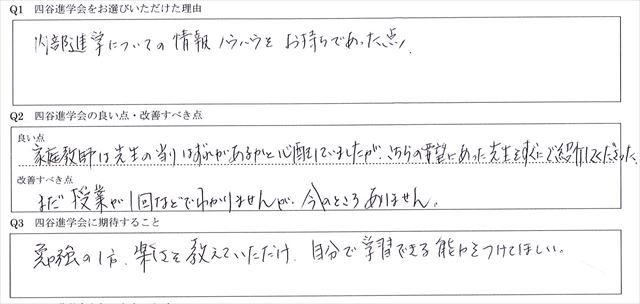 Q1 四谷進学会をお選びいただけた理由
内部進学についての情報、ノウハウを お持ちであった点。
Q2 四谷進学会の良い点・改善すべき点
良い点
家庭教師は先生の当りはずれがあるかと心配していましたが、こちらの要望にあった先生をすぐにご紹介してくださった。
改善すべき点
まだ 授業が1回なのでわかりませんが、今のところありません。
Q3 四谷進学会に期待すること
勉強の仕方、楽しさを教えていただけ、自分で学習できる能力をつけてほしい。